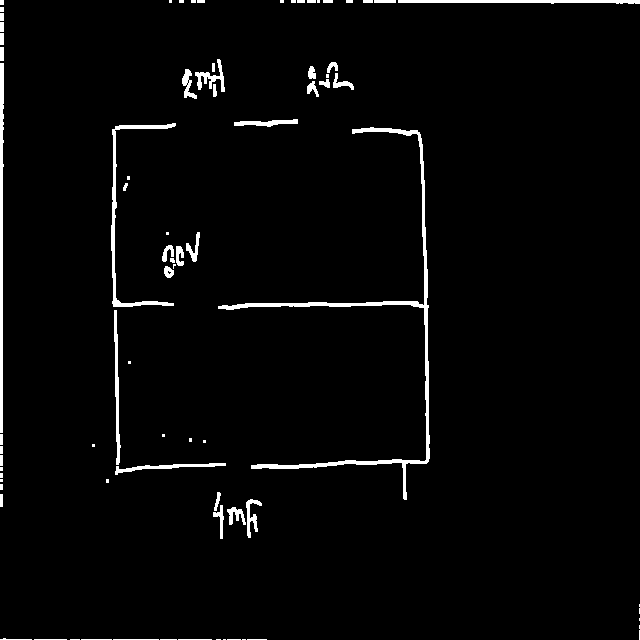 2mH 2Ω
20V
4mF